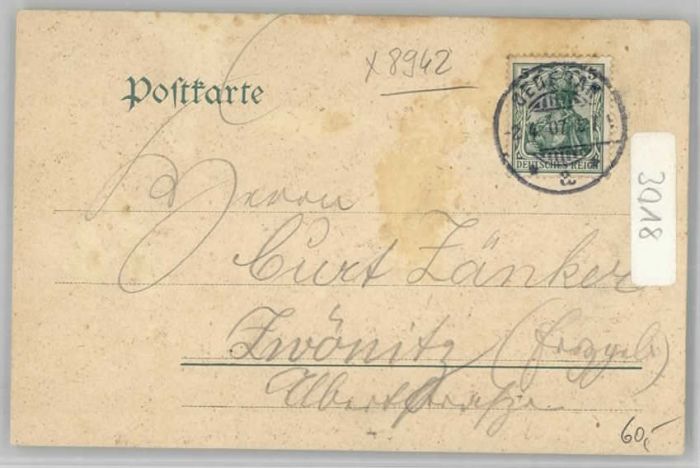 Postkarte
x 8942
5 5
2.4.07.
a
DEUTSCHES REICH
3018
Herrn
Curt Zänker
Zwönitz (Erzgeb.)
Albertstraße
60,-